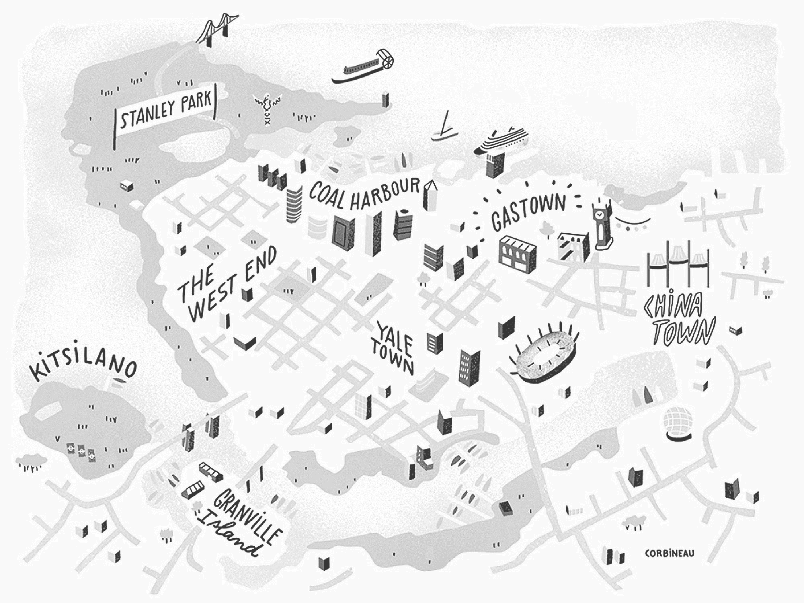 STANLEY PARK
COAL HARBOUR
GASTOWN
THE
WEST END
CHINA
TOWN
YALE
TOWN
KITSILANO
GRANVILLE
Island
CORBINEAU